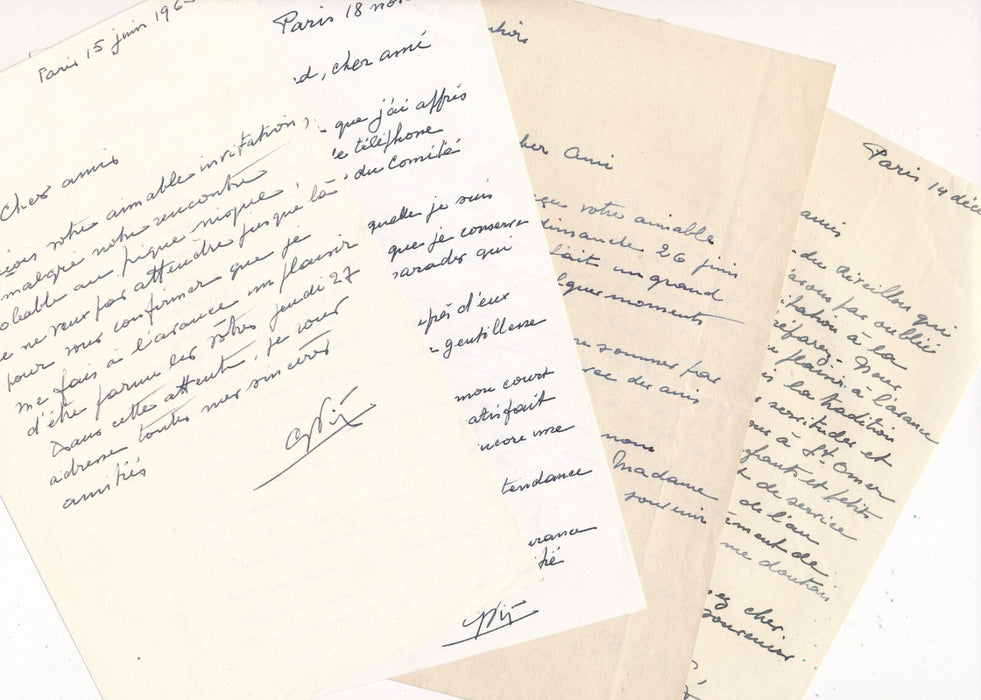 Paris 15 juin 196
Cher ami
votre aimable invitation,
malgré notre rencontre
au pique nique,
ne veux pas attendre jusque là
pour vous confirmer que je
me fais à l'avance un plaisir
d'être parmi les vôtres jeudi 27
Dans cette attente, je vous
adresse toutes mes sincères
amitiés
Paris 18 nov
d, cher ami
que j'ai appris
le téléphone
du Comité
quelle je suis
que je conserve
qui
près d'eux
gentillesse
mon court
atisfait
ncore une
tendance
urance
tié
her Ami
votre aimable
dimanche 26 juin
fait un grand
lques moments
sommes pas
vec des amis
nous
Madame
souvenir
Paris 14 déce
amis
du Réveillon qui
pas oublié
itation à la
préparez. Nous
plaisir à l'avance
la tradition
servitudes et
à St. Omer
fants et petits
de service
de l'an
ment de
me doutais
ez cher
souvenir